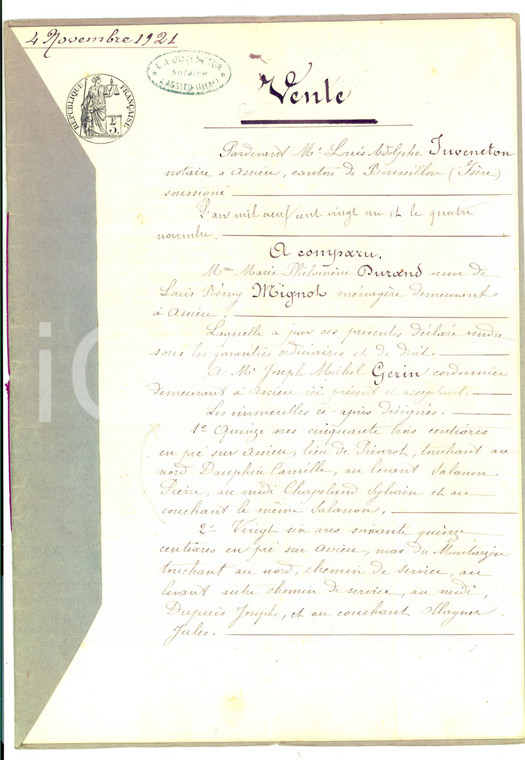 4 Novembre 1921
RÉPUBLIQUE FRANÇAISE
L.A. JUVENETON
Notaire
Vente
Pardevant Me Louis Adolphe Juveneton
notaire à Assieu, canton de Roussillon (Isère)
soussigné
L'an mil neuf cent vingt un et le quatre
novembre.
A comparu.
Mme Marie Philomène Durand veuve de
Louis Rémy Mignot ménagère demeurant
à Assieu.
Laquelle a par ces présentes déclaré vendre
sous les garanties ordinaires et de droit.
A Mr Joseph Michel Gerin cordonnier
demeurant à Assieu ici présent et acceptant.
Les immeubles ci-après désignés.
1o Quinze ares cinquante trois centiares
en pré sur Assieu, lieu de touchant au
nord Dauphin Camille, au levant Salanon
Pierre, au midi Chapeland Sylvain et au
couchant le même Salanon.
2o Vingt six ares soixante quinze
centiares en pré sur Assieu, mas du
touchant au nord, chemin de service, au
levant autre chemin de service, au midi,
Dupuis Joseph, et au couchant
Jules.